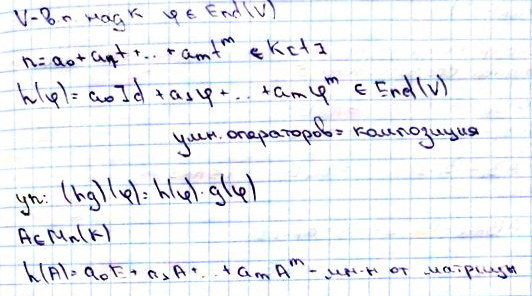 V - в.п над K φ ∈ End(V)
h = a₀ + a₁t + ... + aₘtᵐ ∈ K[t]
h(φ) = a₀Id + a₁φ + ... + aₘφᵐ ∈ End(V)
умн. операторов = композиция
уп: (hg)(φ) = h(φ)·g(φ)
A ∈ Mₙ(K)
h(A) = a₀E + a₁A + ... + aₘAᵐ - мн-н от матрицы